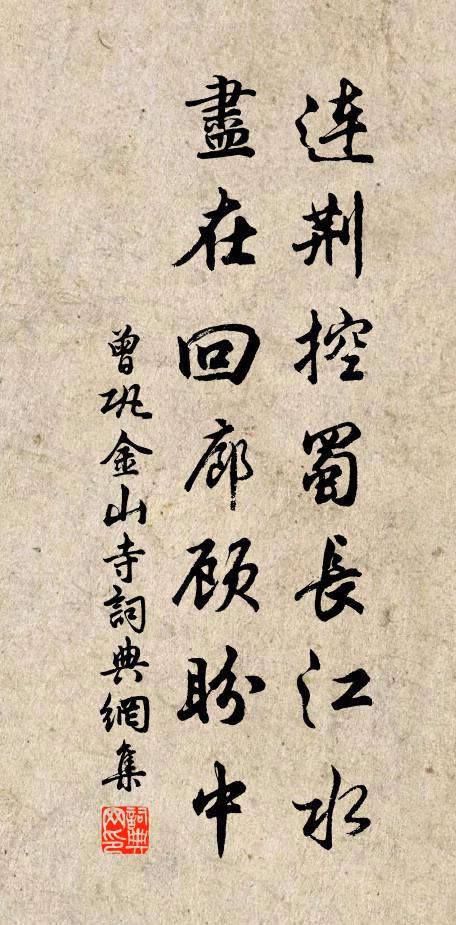 連荆控蜀長江水
盡在回廊顾盼中
曾巩金山寺詞典網集
詞典网印